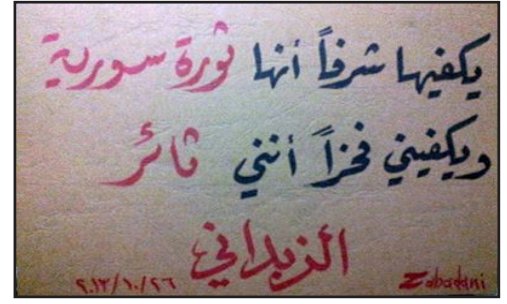 يكفيها شرفاً أنها ثورة سورية
ويكفيني فخراً أنني ثائر
الزبداني
٢٠١٣/١٠/٢٦
Zabadani